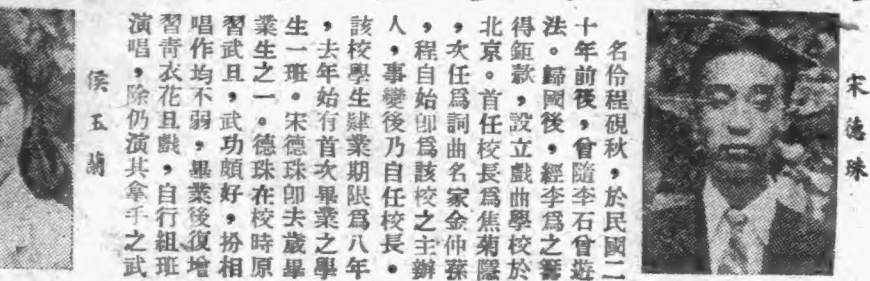 宋德珠
名伶程硯秋,於民國二
十年前後,曾隨李石曾遊
法。歸國後,經李爲之籌
得鉅款,設立戲曲學校於
北京。首任校長爲焦菊隱
,次任爲詞曲名家金仲蓀
,程自始卽爲該校之主辦
人,事變後乃自任校長。
該校學生肄業期限爲八年
,去年始有首次畢業之學
生一班。宋德珠卽去歲畢
業生之一。德珠在校時原
習武旦,武功頗好,扮相
唱作均不弱,畢業後復增
習靑衣花旦戲,自行組班
演唱,除仍演其拿手之武
侯玉蘭